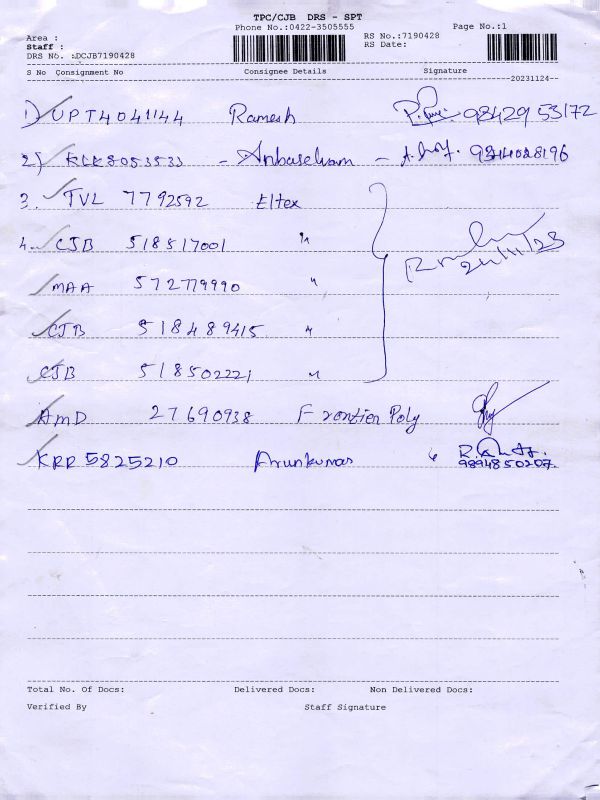 TPC/CJB DRS - SPT
Phone No.:0422-3505555 Page No.:1
Area : RS No.:7190428
Staff : RS Date:
DRS No. :DCJB7190428
S No Consignment No Consignee Details Signature
20231124
1) UPT4041144 Ramesh 98429 53172
2) KLK8053533 - Anbaselvam - 9344028196
3. TVL 7792592 Eltex
4. CJB 518517001 "
MAA 572779990 "
CJB 518489415 "
CJB 518502221 "
24/11/23
AMD 27690938 Frontier Poly
KRR 5825210 Arunkumar
9894850207
Total No. Of Docs: Delivered Docs: Non Delivered Docs:
Verified By Staff Signature